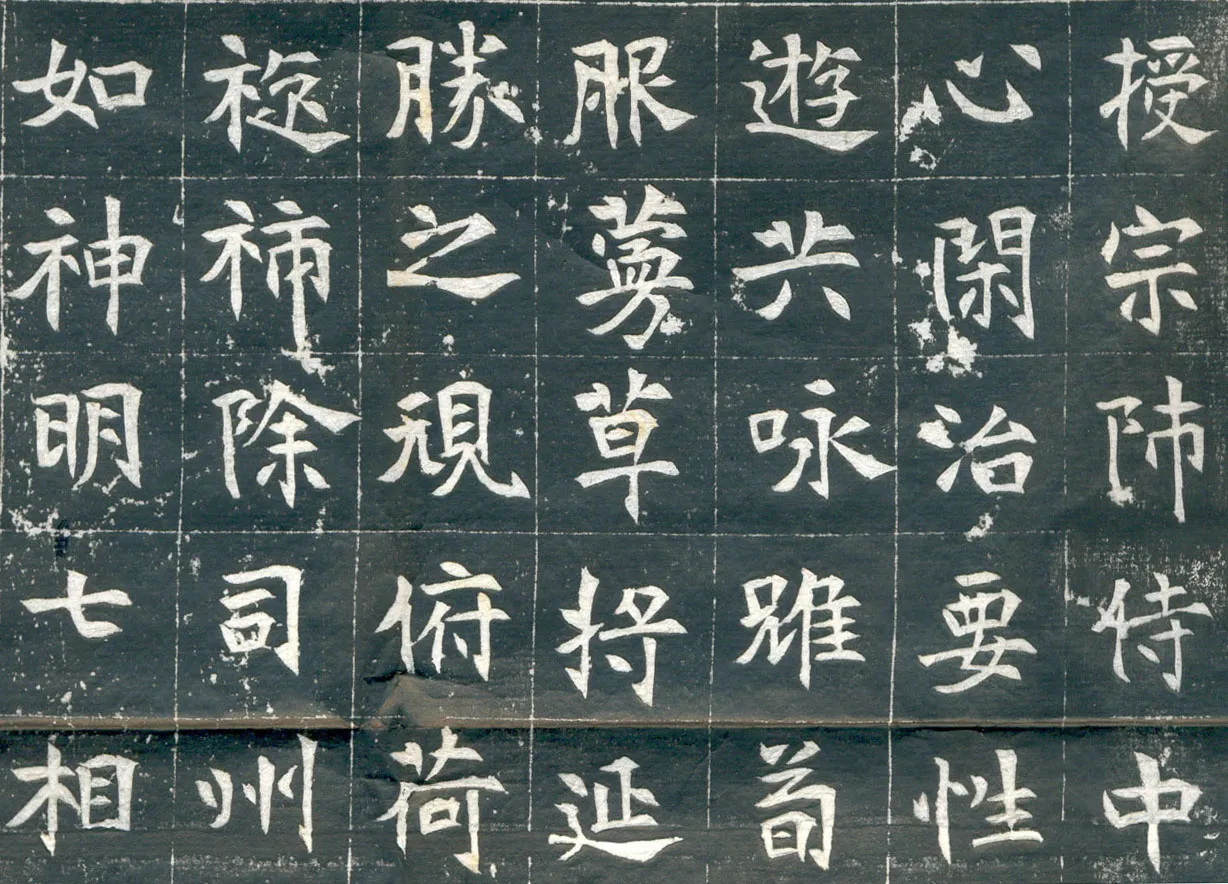 授宗師侍中
心閑治要性
遊共咏雖荀
服蔓草将延
勝之規俯荷
旋旆除司州
如神明七相